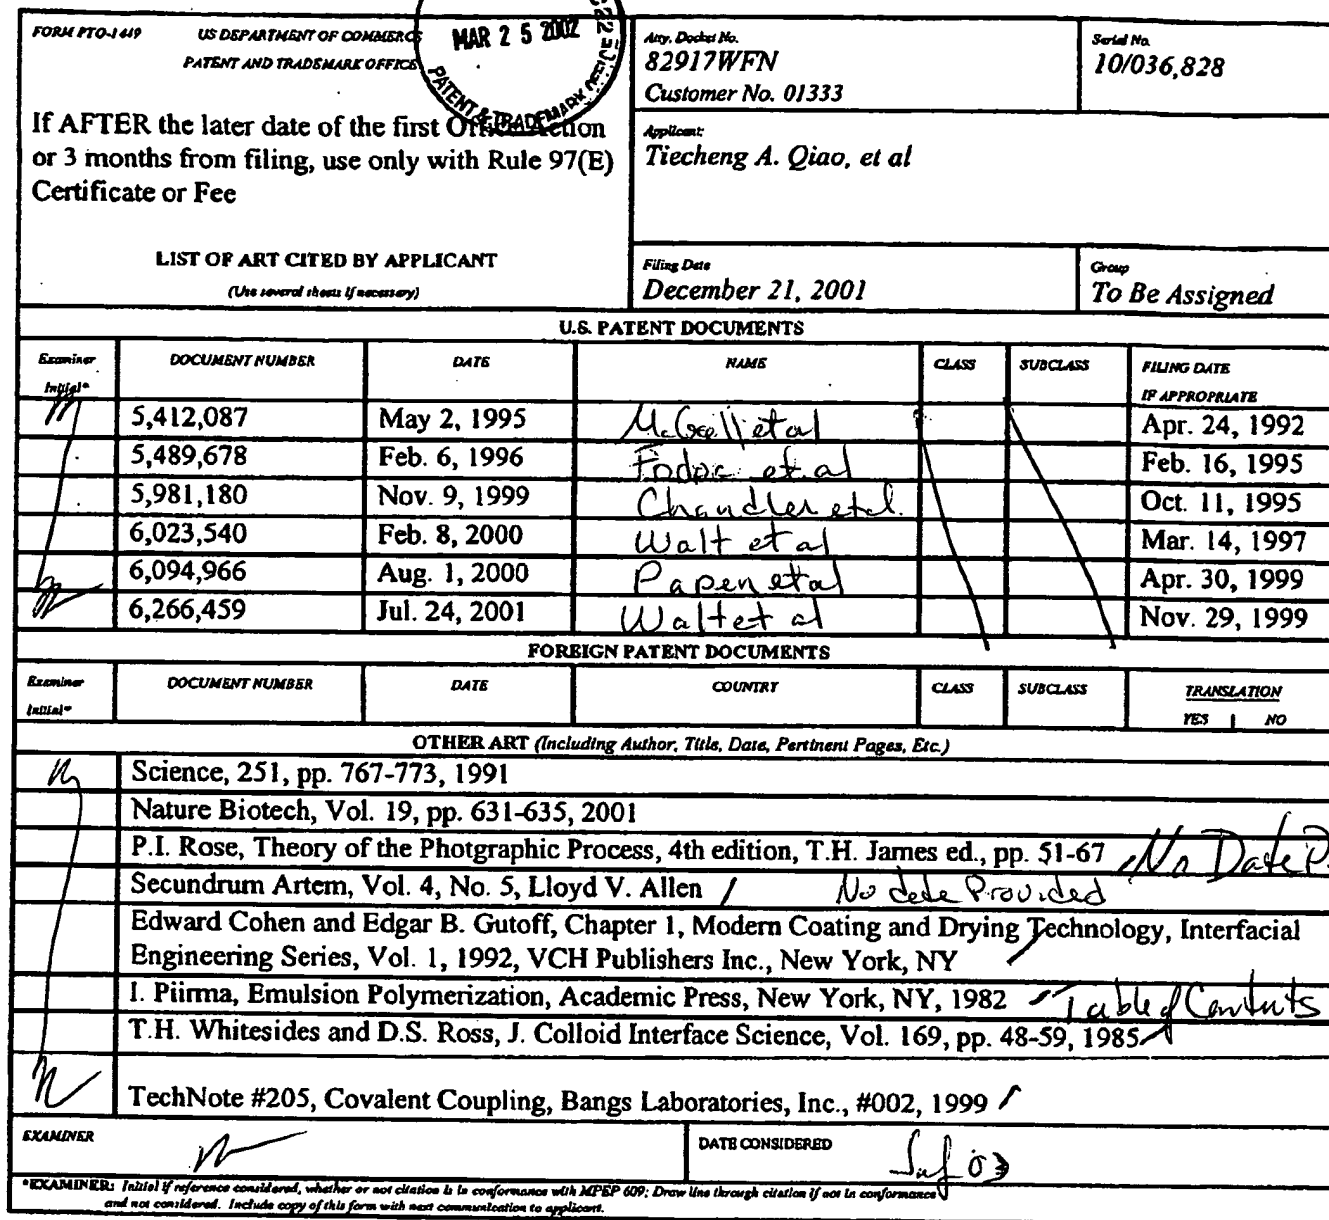 FORM PTO-1449 US DEPARTMENT OF COMMERCE
PATENT AND TRADEMARK OFFICE
MAR 25 2002
PATENT & TRADEMARK OFFICE
If AFTER the later date of the first Office Action
or 3 months from filing, use only with Rule 97(E)
Certificate or Fee
LIST OF ART CITED BY APPLICANT
(Use several sheets if necessary)
Atty. Docket No.
82917WFN
Customer No. 01333
Serial No.
10/036,828
Applicant:
Tiecheng A. Qiao, et al
Filing Date
December 21, 2001
Group
To Be Assigned
U.S. PATENT DOCUMENTS
Examiner Initial* DOCUMENT NUMBER DATE NAME CLASS SUBCLASS FILING DATE IF APPROPRIATE
5,412,087 May 2, 1995 McGall et al Apr. 24, 1992
5,489,678 Feb. 6, 1996 Fodor et al Feb. 16, 1995
5,981,180 Nov. 9, 1999 Chandler et al. Oct. 11, 1995
6,023,540 Feb. 8, 2000 Walt et al Mar. 14, 1997
6,094,966 Aug. 1, 2000 Papen et al Apr. 30, 1999
6,266,459 Jul. 24, 2001 Walt et al Nov. 29, 1999
FOREIGN PATENT DOCUMENTS
Examiner Initial* DOCUMENT NUMBER DATE COUNTRY CLASS SUBCLASS TRANSLATION
YES NO
OTHER ART (Including Author, Title, Date, Pertinent Pages, Etc.)
Science, 251, pp. 767-773, 1991
Nature Biotech, Vol. 19, pp. 631-635, 2001
P.I. Rose, Theory of the Photgraphic Process, 4th edition, T.H. James ed., pp. 51-67 No Date P.
Secundrum Artem, Vol. 4, No. 5, Lloyd V. Allen No date Provided
Edward Cohen and Edgar B. Gutoff, Chapter 1, Modern Coating and Drying Technology, Interfacial
Engineering Series, Vol. 1, 1992, VCH Publishers Inc., New York, NY
I. Piirma, Emulsion Polymerization, Academic Press, New York, NY, 1982 Table of Contents
T.H. Whitesides and D.S. Ross, J. Colloid Interface Science, Vol. 169, pp. 48-59, 1985
TechNote #205, Covalent Coupling, Bangs Laboratories, Inc., #002, 1999
EXAMINER
DATE CONSIDERED
03
*EXAMINER: Initial if reference considered, whether or not citation is in conformance with MPEP 609; Draw line through citation if not in conformance
and not considered. Include copy of this form with next communication to applicant.